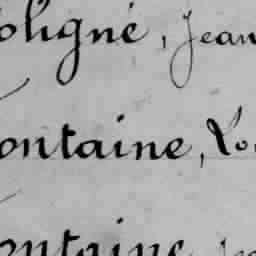 oligné, Jean
ontaine, Lo
ontaine, Je